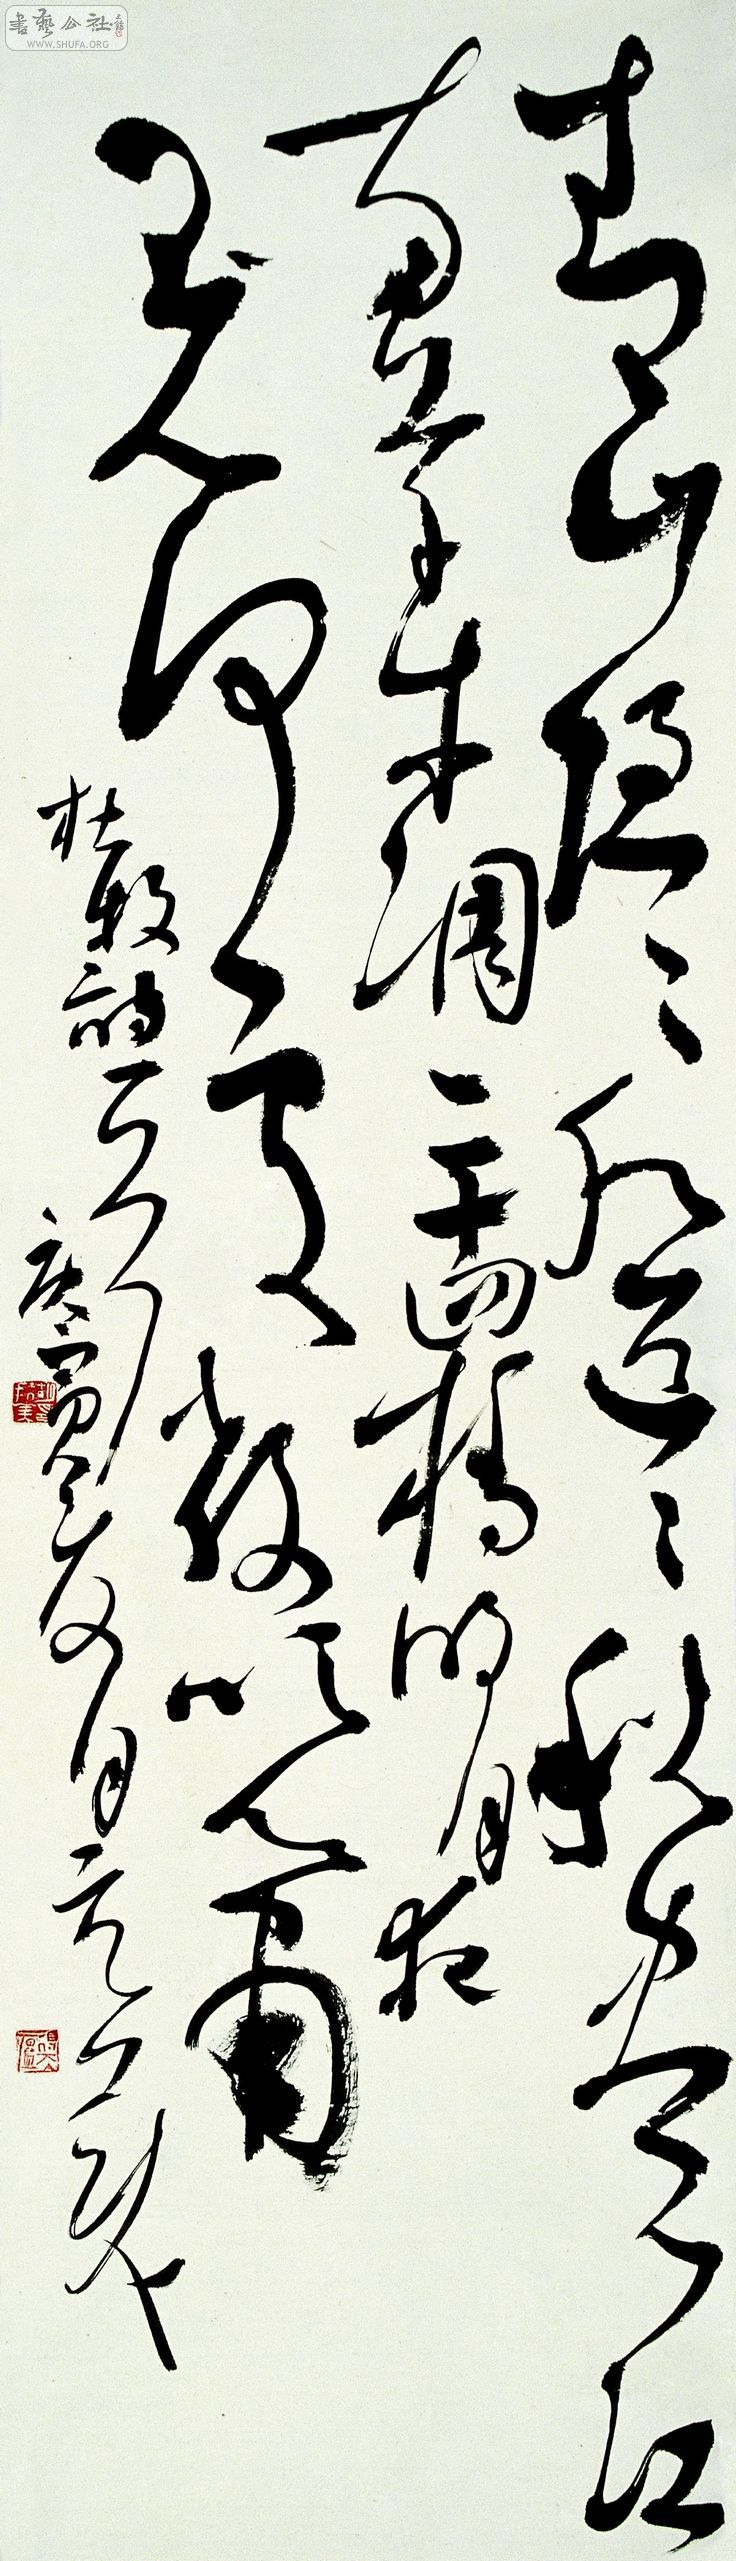 書藝公社
WWW.SHUFA.ORG
青山隱〻水迢〻秋盡江
南草未凋二十四橋明月夜
玉人何處教吹簫
杜牧詩
庚寅夏月